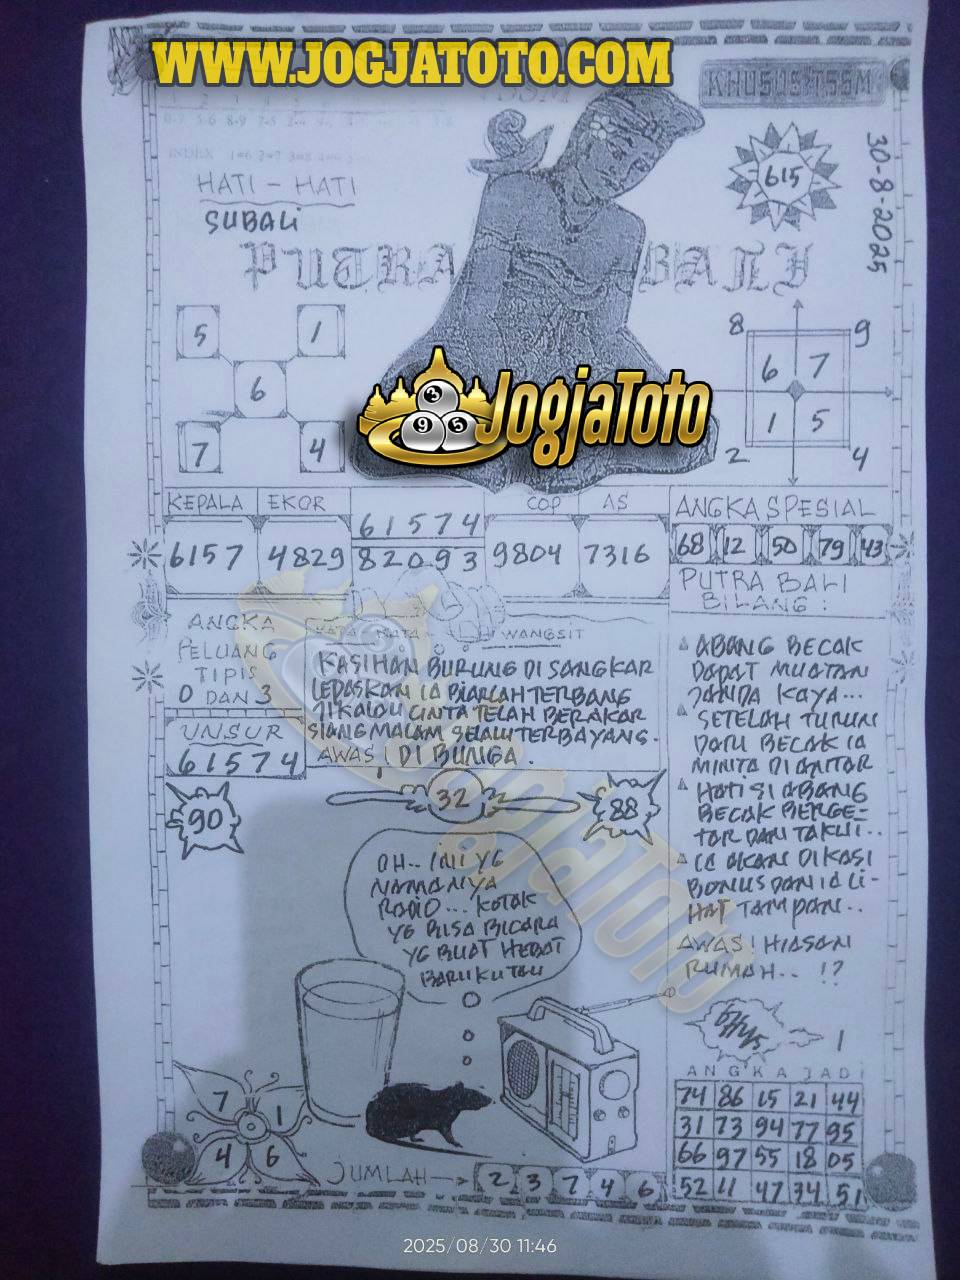 WWW.JOGJATOTO.COM
KHUSUS TSSM
30-8-2025
HATI - HATI
SUBALI
615
PUTRA BALI
5 1
6
7 4
JogjaToto
3
9 5
8 9
6 7
1 5
2 4
KEPALA EKOR COP AS
6157 4829 61574 9804 7316
82093
ANGKA SPESIAL
68 12 50 79 43
PUTRA BALI
BILANG :
ANGKA
PELUANG
TIPIS
0 DAN 3
UNSUR
61574
WANGSIT
KASIHAN BURUNG DI SANGKAR
LEPASKAN IA BIARLAH TERBANG
JIKALOU CINTA TELAH BERAKAR
SIANG MALAM SELALU TERBAYANG.
AWAS ! DI BUNGA .
ABANG BECAK
DAPAT MUATAN
JANDA KAYA...
SETELAH TURUN
DARI BECAK IA
MINTA DI ANTAR
HATI SI ABANG
BECAK BERGE-
TAR DAN TAKUT..
IA AKAN DI KASI
BONUS DAN IA LI-
HAT TAMPAN..
AWAS ! HIASAN
RUMAH.. !?
90
32
88
OH.. INI YG
NAMANYA
RADIO... KOTAK
YG BISA BICARA
YG BUAT HEBAT
BARU KU TAU
1
ANGKA JADI
74 86 15 21 44
31 73 94 77 95
66 97 55 18 05
52 11 47 34 51
7 1
4 6
JUMLAH → 2 3 7 4 6
2025/08/30 11:46